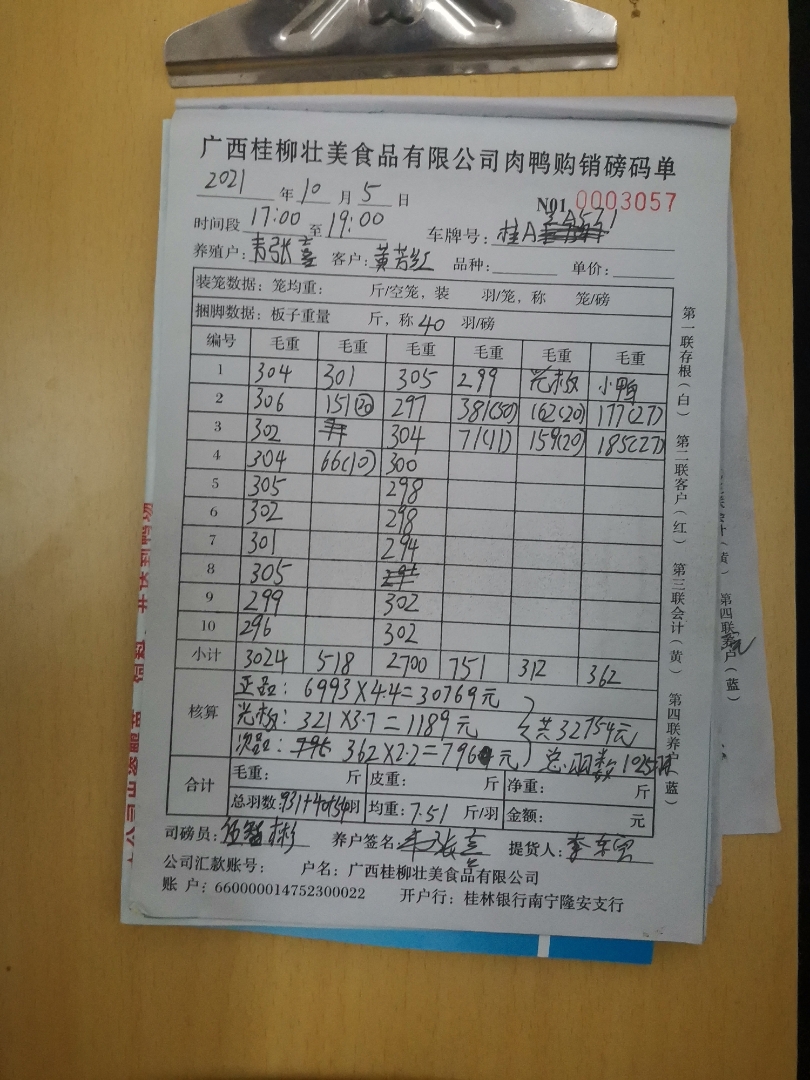 广西桂柳壮美食品有限公司肉鸭购销磅码单
2021 年 10 月 5 日 N01 0003057
时间段 17:00 至 19:00 车牌号: 桂A
养殖户: 客户: 黄芳红 品种: 单价:
装笼数据: 笼均重: 斤/空笼, 装 羽/笼, 称 笼/磅
捆脚数据: 板子重量 斤, 称 40 羽/磅
编号 毛重 毛重 毛重 毛重 毛重 毛重
1 304 301 305 299 光板 小鸭
2 306 151(20) 297 381(50) 162(20) 177(27)
3 302 304 71(11) 159(20) 185(27)
4 304 66(10) 300
5 305 298
6 302 298
7 301 294
8 305
9 299 302
10 296 302
小计 3024 518 2700 751 312 362
核算
正品: 6993×4.4=30769元
光板: 321×3.7=1189元 共32754元
次品: 362×2.2=796元 总羽数1025羽
合计 毛重: 斤 皮重: 斤 净重: 斤
总羽数: 931+40+54羽 均重: 7.51 斤/羽 金额: 元
司磅员: 养户签名: 提货人:
公司汇款账号: 户名: 广西桂柳壮美食品有限公司
账 户: 660000014752300022 开户行: 桂林银行南宁隆安支行
第一联存根(白) 第二联客户(红) 第三联会计(黄) 第四联养户(蓝)
第四联养户(蓝)